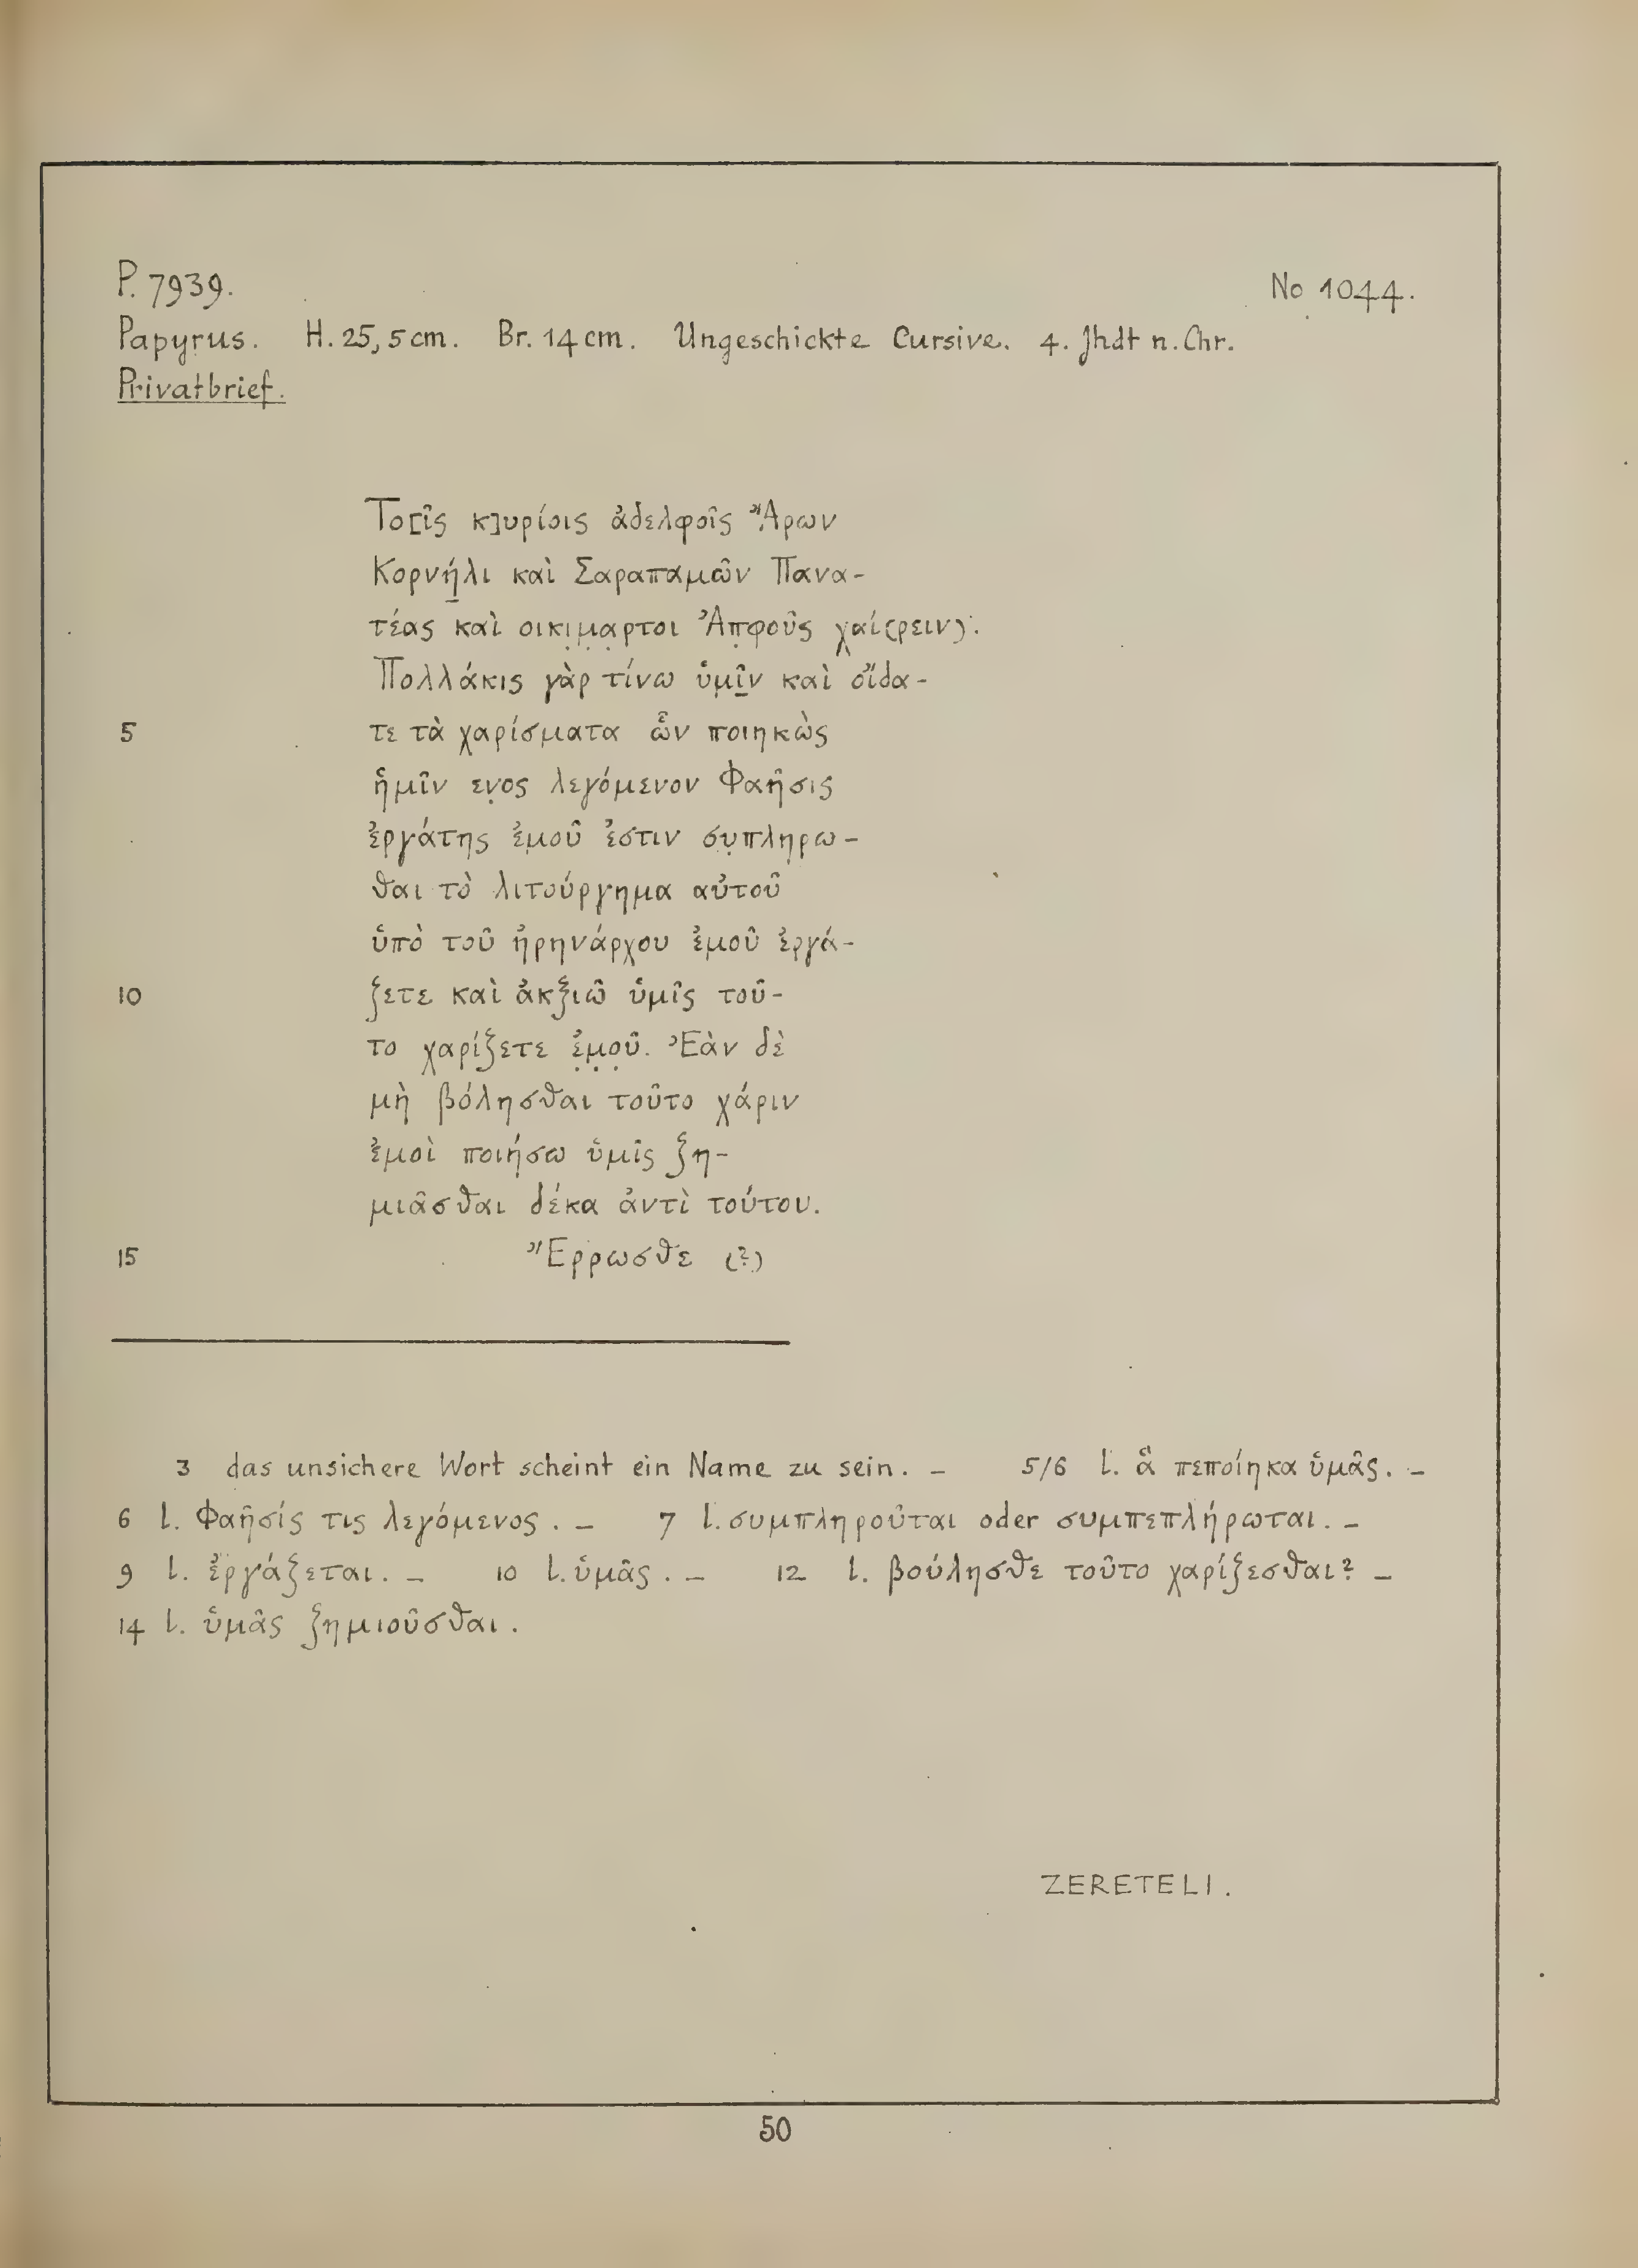 P. 7939. No 1044.
Papyrus. H. 25,5 cm. Br. 14 cm. Ungeschickte Cursive. 4. Jhdt n. Chr.
Privatbrief.
Το[ῖς κ]υρίοις ἀδελφοῖς Ἄρων
Κορνή̣λι καὶ Σαραπαμῶν Πανα-
τέας καὶ οικι̣μ̣α̣ρτοι Ἀπ̣φοῦς χαί(ρειν).
Πολλάκις γὰρ τίνω ὑμῖ̣ν καὶ οἴδα-
5 τε τὰ χαρίσματα ὧν ποιηκὼς
ἡμῖν εν̣ος λεγόμενον Φαῆσις
ἐργάτης ἐμοῦ ἐστιν συ̣πλη̣ρω-
θαι τὸ λιτούργημα αὐτοῦ
ὑπὸ τοῦ ἠρηνάρχου ἐμοῦ ἐργά-
10 ζετε καὶ ἀκξιῶ ὑμῖς τοῦ-
το χαρίζετε ἐ̣μ̣ο̣ῦ. Ἐὰν δὲ
μὴ βόλησθαι τοῦτο χάριν
ἐμοὶ ποιήσω ὑμῖς ζη-
μιᾶσθαι δέκα ἀντὶ τούτου.
15 Ἔρρωσθε (?)
3 das unsichere Wort scheint ein Name zu sein. – 5/6 l. ἃ πεποίηκα ὑμᾶς. –
6 l. Φαῆσίς τις λεγόμενος. – 7 l. συμπληροῦται oder συμπεπλήρωται. –
9 l. ἐργάζεται. – 10 l. ὑμᾶς. – 12 l. βούλησθε τοῦτο χαρίζεσθαι? –
14 l. ὑμᾶς ζημιοῦσθαι.
ZERETELI.
50